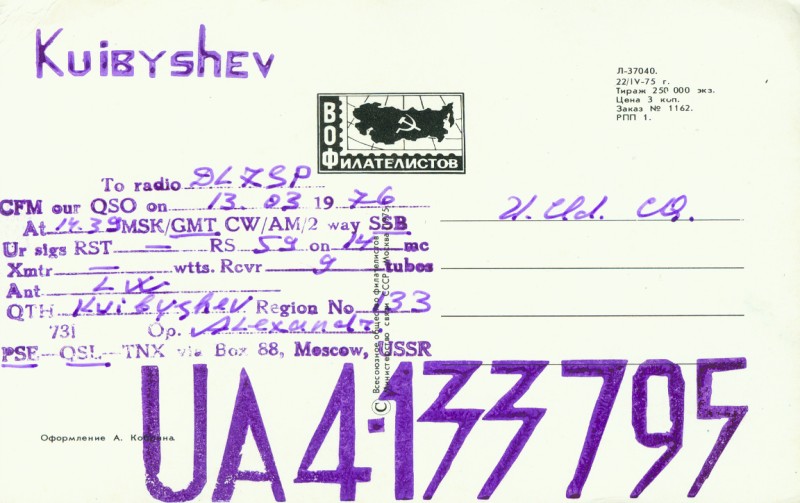 Kuibyshev
Л-37040.
22/IV-75 г.
Тираж 250 000 экз.
Цена 3 коп.
Заказ № 1162.
РПП 1.
ВОФ
ФИЛАТЕЛИСТОВ
To radio DL7SP
CFM our QSO on 13.03 1976
At 14.39 MSK/GMT CW/AM/2 way SSB
Ur sigs RST — RS 59 on 14 mc
Xmtr — wtts. Rcvr 9 tubes
Ant LW
QTH Kuibyshev Region No 133
731 Op. Alexandr.
PSE—QSL—TNX via Box 88, Moscow, USSR
© Всесоюзное общество филателистов
Министерство связи СССР. Москва 1975
UA4-133795
Оформление А.